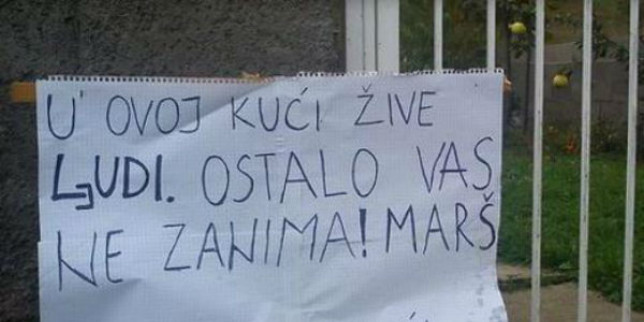 U OVOJ KUĆI ŽIVE
LJUDI. OSTALO VAS
NE ZANIMA! MARŠ